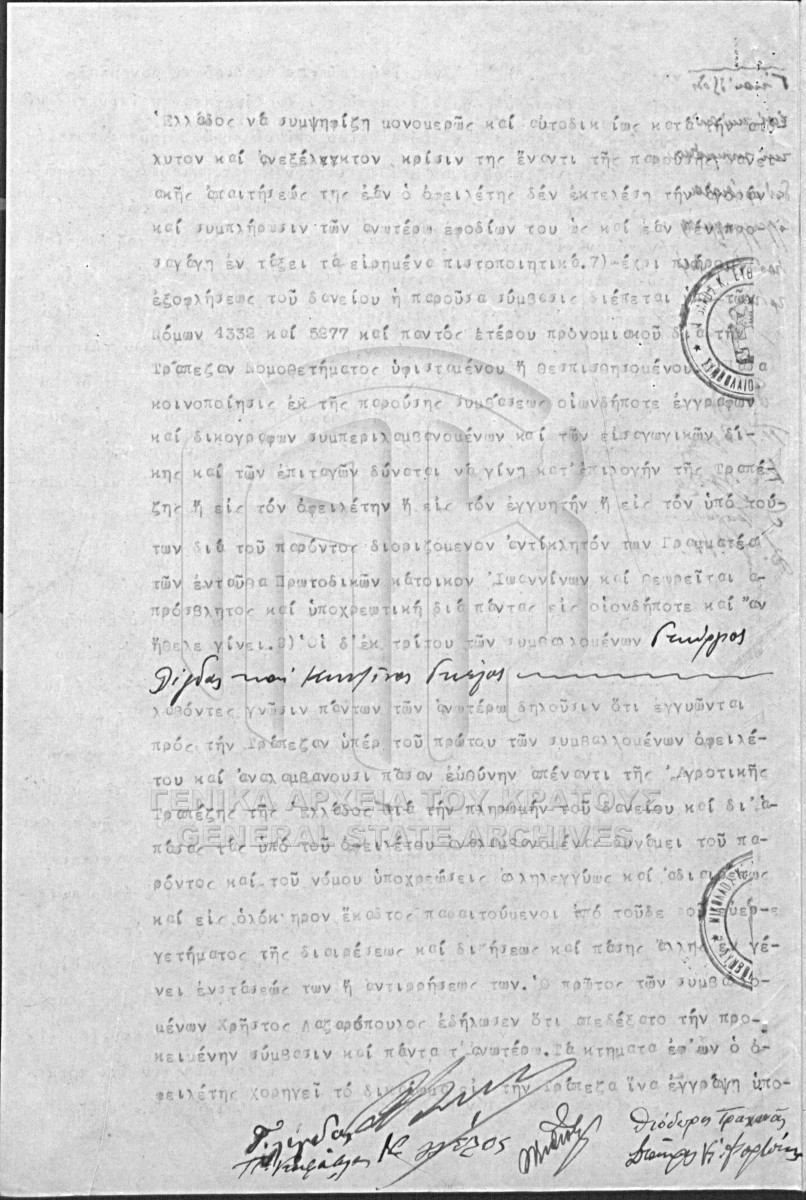 Ἑλλάδος νά συμψηφίζῃ μονομερῶς καί αὐτοδικαίως κατά τήν ἀπό-
λυτον καί ἀνεξέλεγκτον κρίσιν της ἔναντι τῆς παρούσης
ακῆς ἀπαιτήσεώς της ἐάν ὁ ὀφειλέτης δέν ἐκτελέσῃ τήν ἀγοράν
καί συμπλήρωσιν τῶν ἀνωτέρω ἐφοδίων του ὡς καί ἐάν δέν προ-
σαγάγῃ ἐν τάξει τά εἰρημένα πιστοποιητικά.7)-έχρι πλήρους
ἐξοφλήσεως τοῦ δανείου ἡ παροῦσα σύμβασις διέπεται τῶν
Νόμων 4332 καί 5277 καί παντός ἑτέρου προνομιακοῦ διά τήν
Τράπεζαν Νομοθετήματος ὑφισταμένου ἤ θεσπισθησομένου
κοινοποίησις ἐκ τῆς παρούσης συμβάσεως οἱωνδήποτε ἐγγράφων
καί δικογράφων συμπεριλαμβανομένων καί τῶν εἰσαγωγικῶν δί-
κης καί τῶν ἐπιταγῶν δύναται νά γίνῃ κατ'ἐπιλογήν τῆς Τραπέ-
ζης ἤ εἰς τόν ὀφειλέτην ἤ εἰς τόν ἐγγυητήν ἤ εἰς τόν ὑπό τού-
των διά τοῦ παρόντος διοριζόμενον ἀντίκλητόν των Γραμματέα
τῶν ἐνταῦθα Πρωτοδικῶν κάτοικον Ἰωαννίνων καί θεωρεῖται ἀ-
πρόσβλητος καί ὑποχρεωτική διά πάντας εἰς οἱονδήποτε καί ἄν
ἤθελε γίνει.8)Οἱ δ'ἐκ τρίτου τῶν συμβαλλομένων Γεώργιος
καί
λαβόντες γνῶσιν πάντων τῶν ἀνωτέρω δηλοῦσιν ὅτι ἐγγυῶνται
πρός τήν Τράπεζαν ὑπέρ τοῦ πρώτου τῶν συμβαλλομένων ὀφειλέ-
του καί ἀναλαμβάνουσι πᾶσαν εὐθύνην ἀπέναντι τῆς Ἀγροτικῆς
Τραπέζης τῆς Ἑλλάδος διά τήν πληρωμήν τοῦ δανείου καί δι'ἁ-
πάσας τάς ὑπό τοῦ ὀφειλέτου ἀναλαμβανομένας δυνάμει τοῦ πα-
ρόντος καί τοῦ νόμου ὑποχρεώσεις ἀλληλεγγύως καί ἀδιαιρέτως
καί εἰς ὁλόκληρον ἕκαστος παραιτούμενοι ἀπό τοῦδε τοῦ εὐερ-
γετήματος τῆς διαιρέσεως καί διζήσεως καί πάσης ἄλλης ἐν γέ-
νει ἐνστάσεώς των ἤ ἀντιρρήσεως των. Ὁ πρῶτος τῶν συμβαλλο-
μένων Χρῆστος Λαζαρόπουλος ἐδήλωσεν ὅτι ἀπεδέξατο τήν προ-
κειμένην σύμβασιν καί πάντα τ'ἀνωτέρω.Τά κτήματα ἐφ'ὧν ὁ ὀ-
φειλέτης χορηγεῖ τό δικαίωμα εἰς τήν Τράπεζα ἵνα ἐγγράψῃ ὑπο-
ΓΕΝΙΚΑ ΑΡΧΕΙΑ ΤΟΥ ΚΡΑΤΟΥΣ
GENERAL STATE ARCHIVES